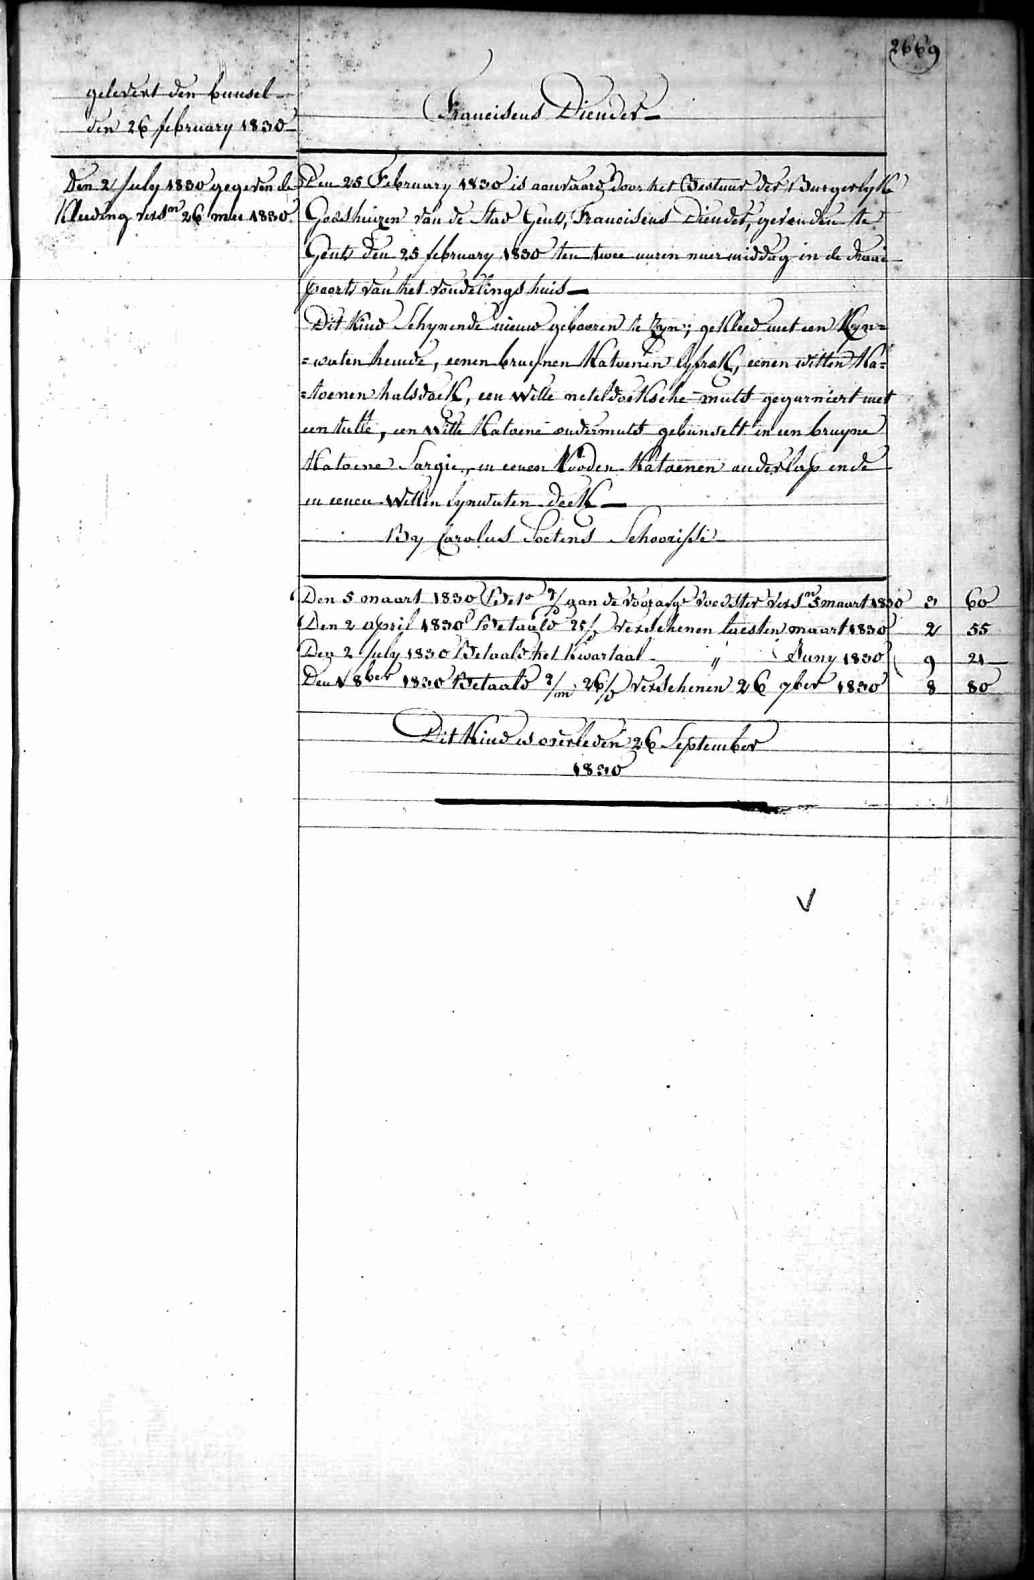 2669
gelevert den bunsel
den 26 february 1830
Franciscus Diender
Den 2 July 1830 gegeven de
Kleeding vers.n 26 mei 1830.
Den 25 February 1830 is aanvaard door het Bestuur der Burgerlyke
Godshuizen van de Stad Gend, Franciscus Diender, gevonden te
Gend den 25 february 1830 ten twee uuren naermiddag in de draai
poorte van het vondelings huis
Dit Kind Schynende nieuw gebooren te Zyn; gekleed met een Lyn=
=waten hemde, eenen bruynen Katoenen lyfrok, eenen witten Ka=
=toenen halsdoek, een witte neteldoeksche muts gegarniert met
een tulle, een witte Katoene ondermuts gebunselt in een bruyne
Katoene Sargie, in eenen Rooden Katoenen onderlap ende
in eenen Witten lynwaten doek
By Carolus Soetens Schoorisse
Den 5 maart 1830 aan de voorafge voedster vers.n 5 maart 1830 3 60
Den 2 april 1830 Betaald 25/d verschenen laesten maart 1830 2 55
Den 2 July 1830 Betaald het Kwartaal " Juny 1830 9 21
Den 1 8ber 1830 Betaald 2/m 26/d verschenen 26 7ber 1830 8 80
Dit Kind is overleden 26 September
1830